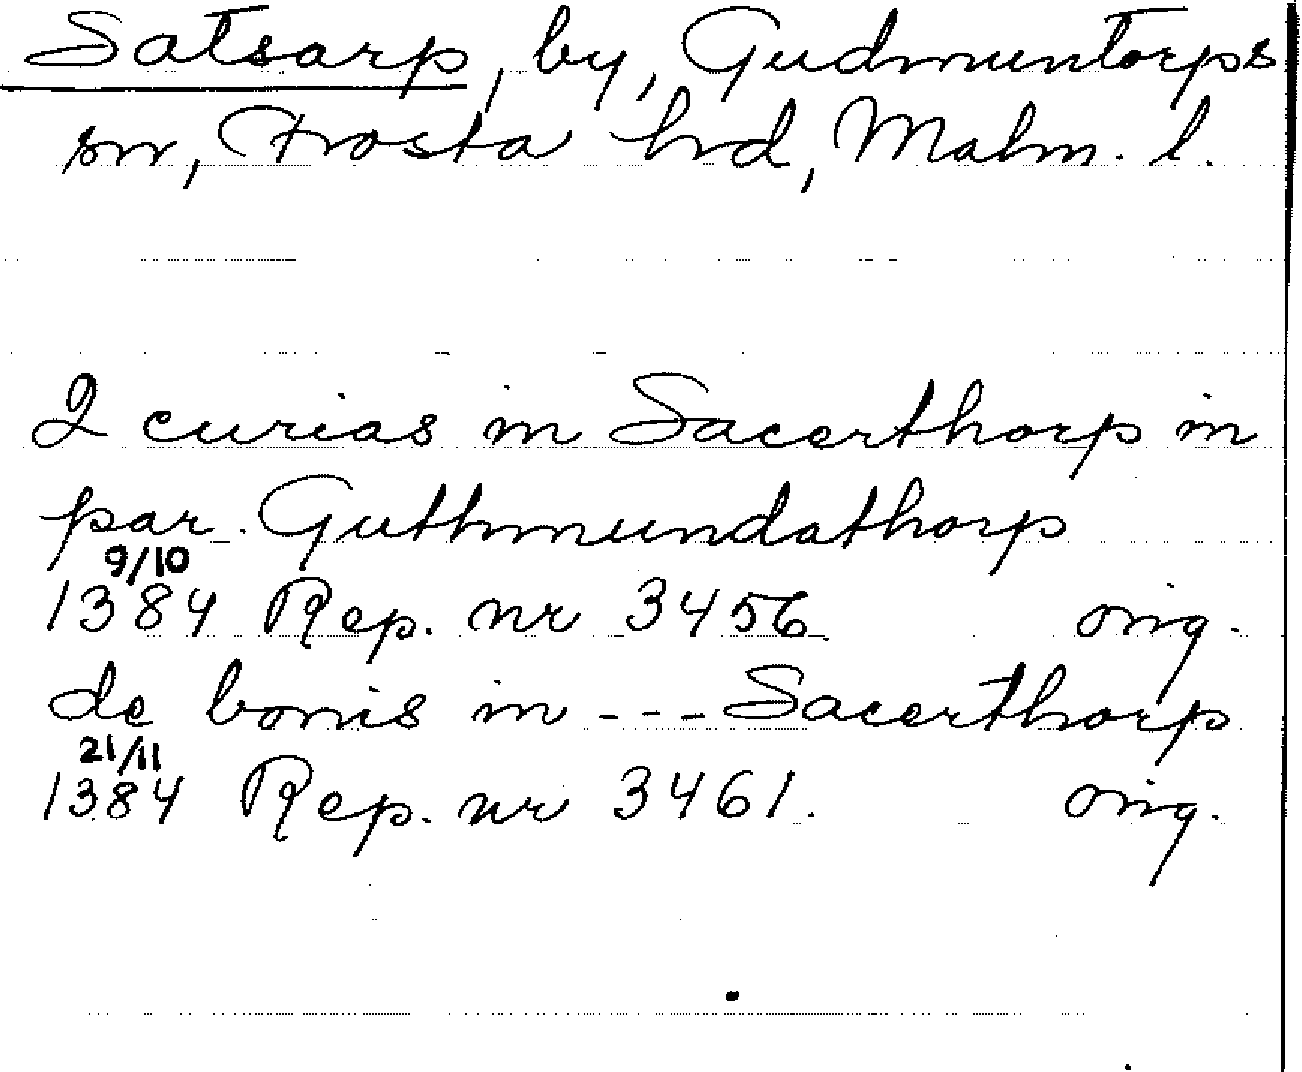 Satsarp, by, Gudmuntorps
sn, Frosta hd, Malm. l.
2 curias in Sacerthorp in
par. Guthmundathorp
9/10
1384 Rep. nr 3456 orig.
de bonis in --- Sacerthorp
21/11
1384 Rep. nr 3461. orig.